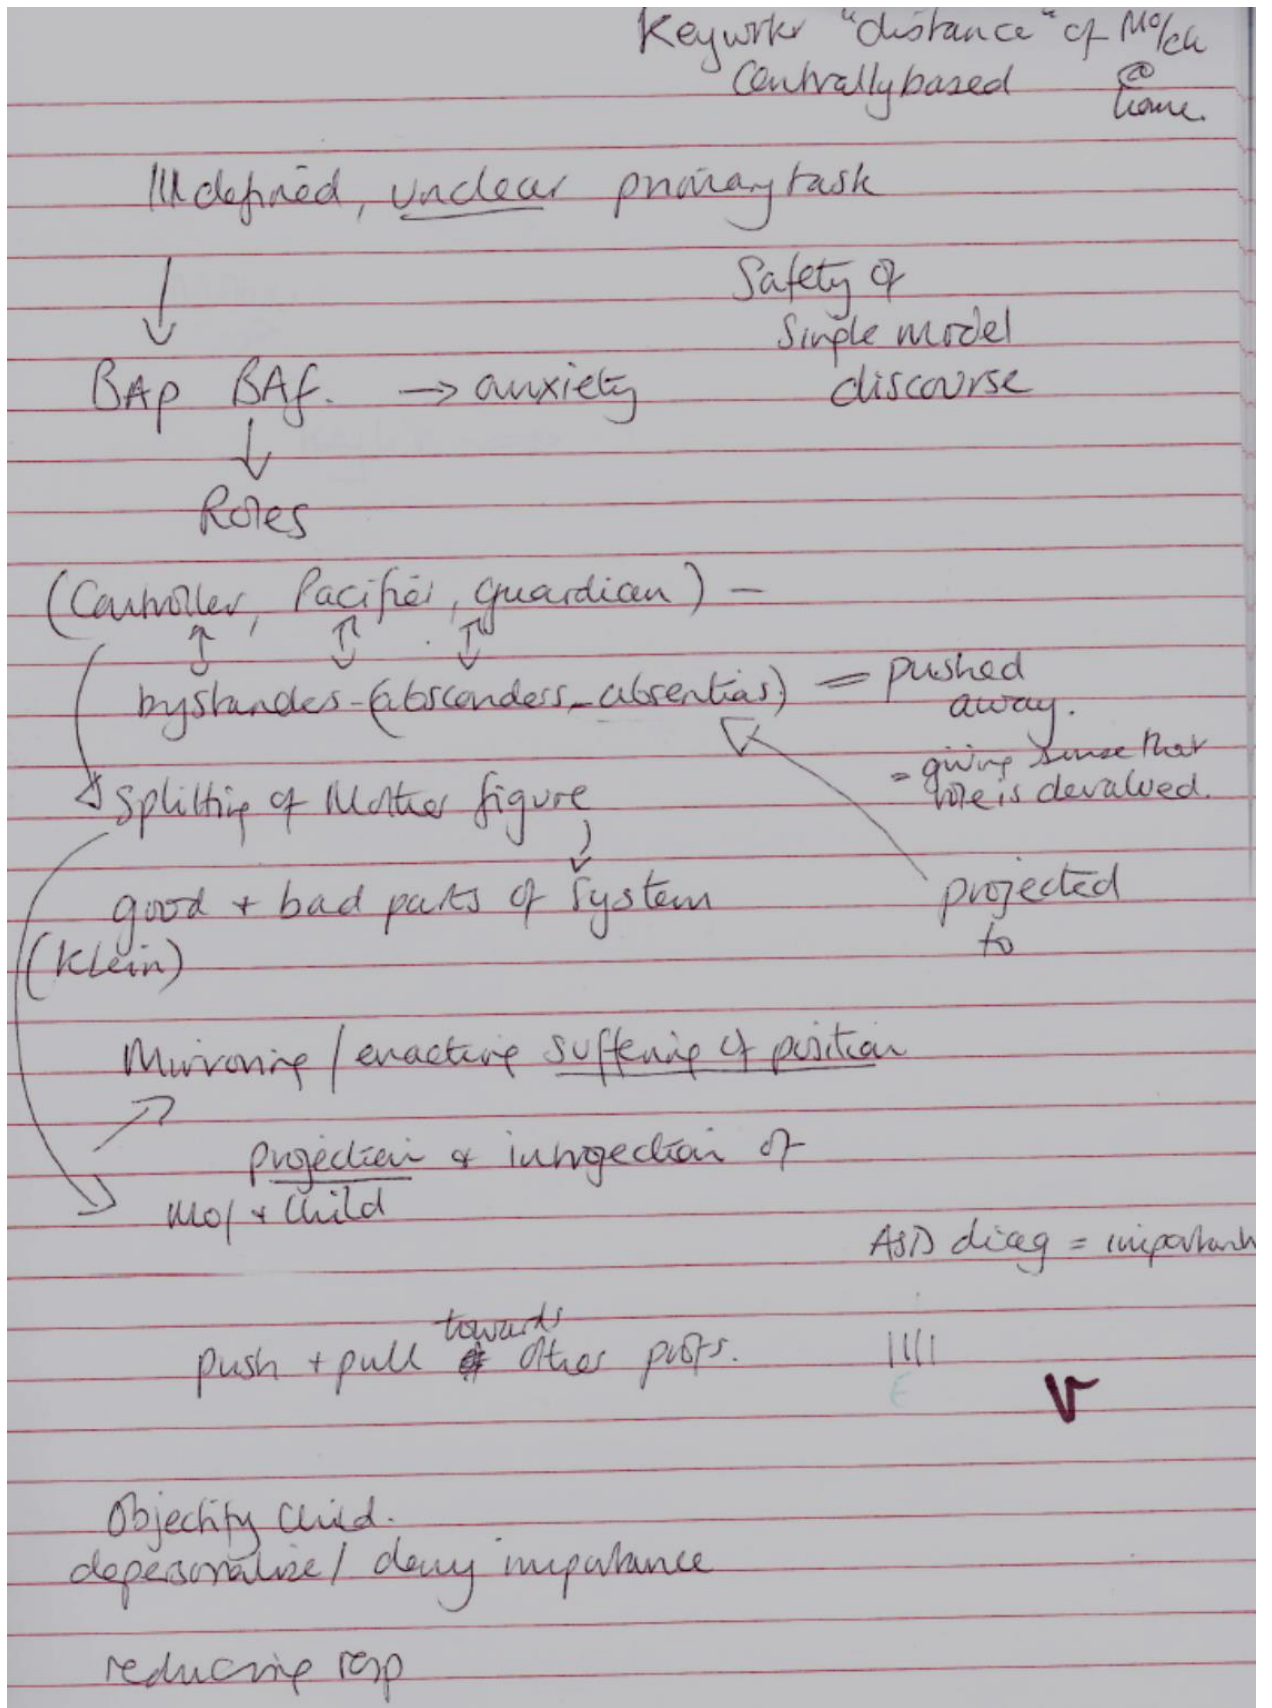 Keywrkr "distance" of Mo/ch
Centrally based @
home.
Ill defined, unclear primary task
Safety of
Single model
discourse
BAp BAf. → anxiety
Roles
(Controller, Pacifier, guardian) –
bystanders - (absconders - absentias) = pushed
away.
= giving sense that
role is devalued.
Splitting of Mother figure
good + bad parts of System
projected
to
(Klein)
Mirroring / enacting suffering of position
projection & introjection of
Mo/ + Child
ASD diag = important
towards
push + pull other profs.
Objectify Child.
depersonalise / deny importance
reducing resp